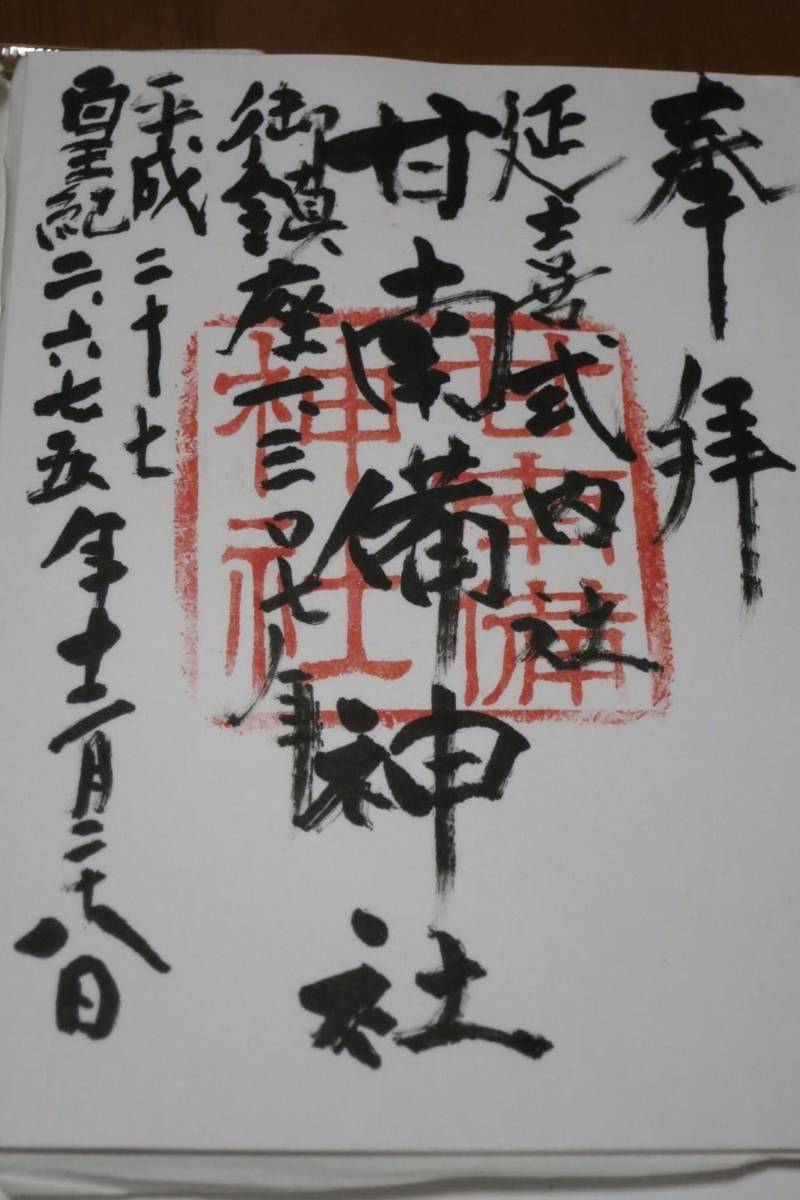 奉拝
延喜式内社
甘南備神社
甘南備
神社
御鎮座一、三〇七年
平成二十七
皇紀二、六七五年十二月二十八日